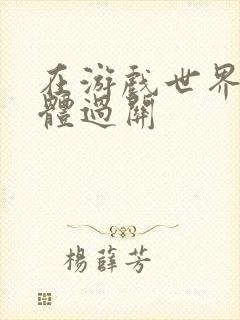 在游戏世界
體過關
楊薛芳